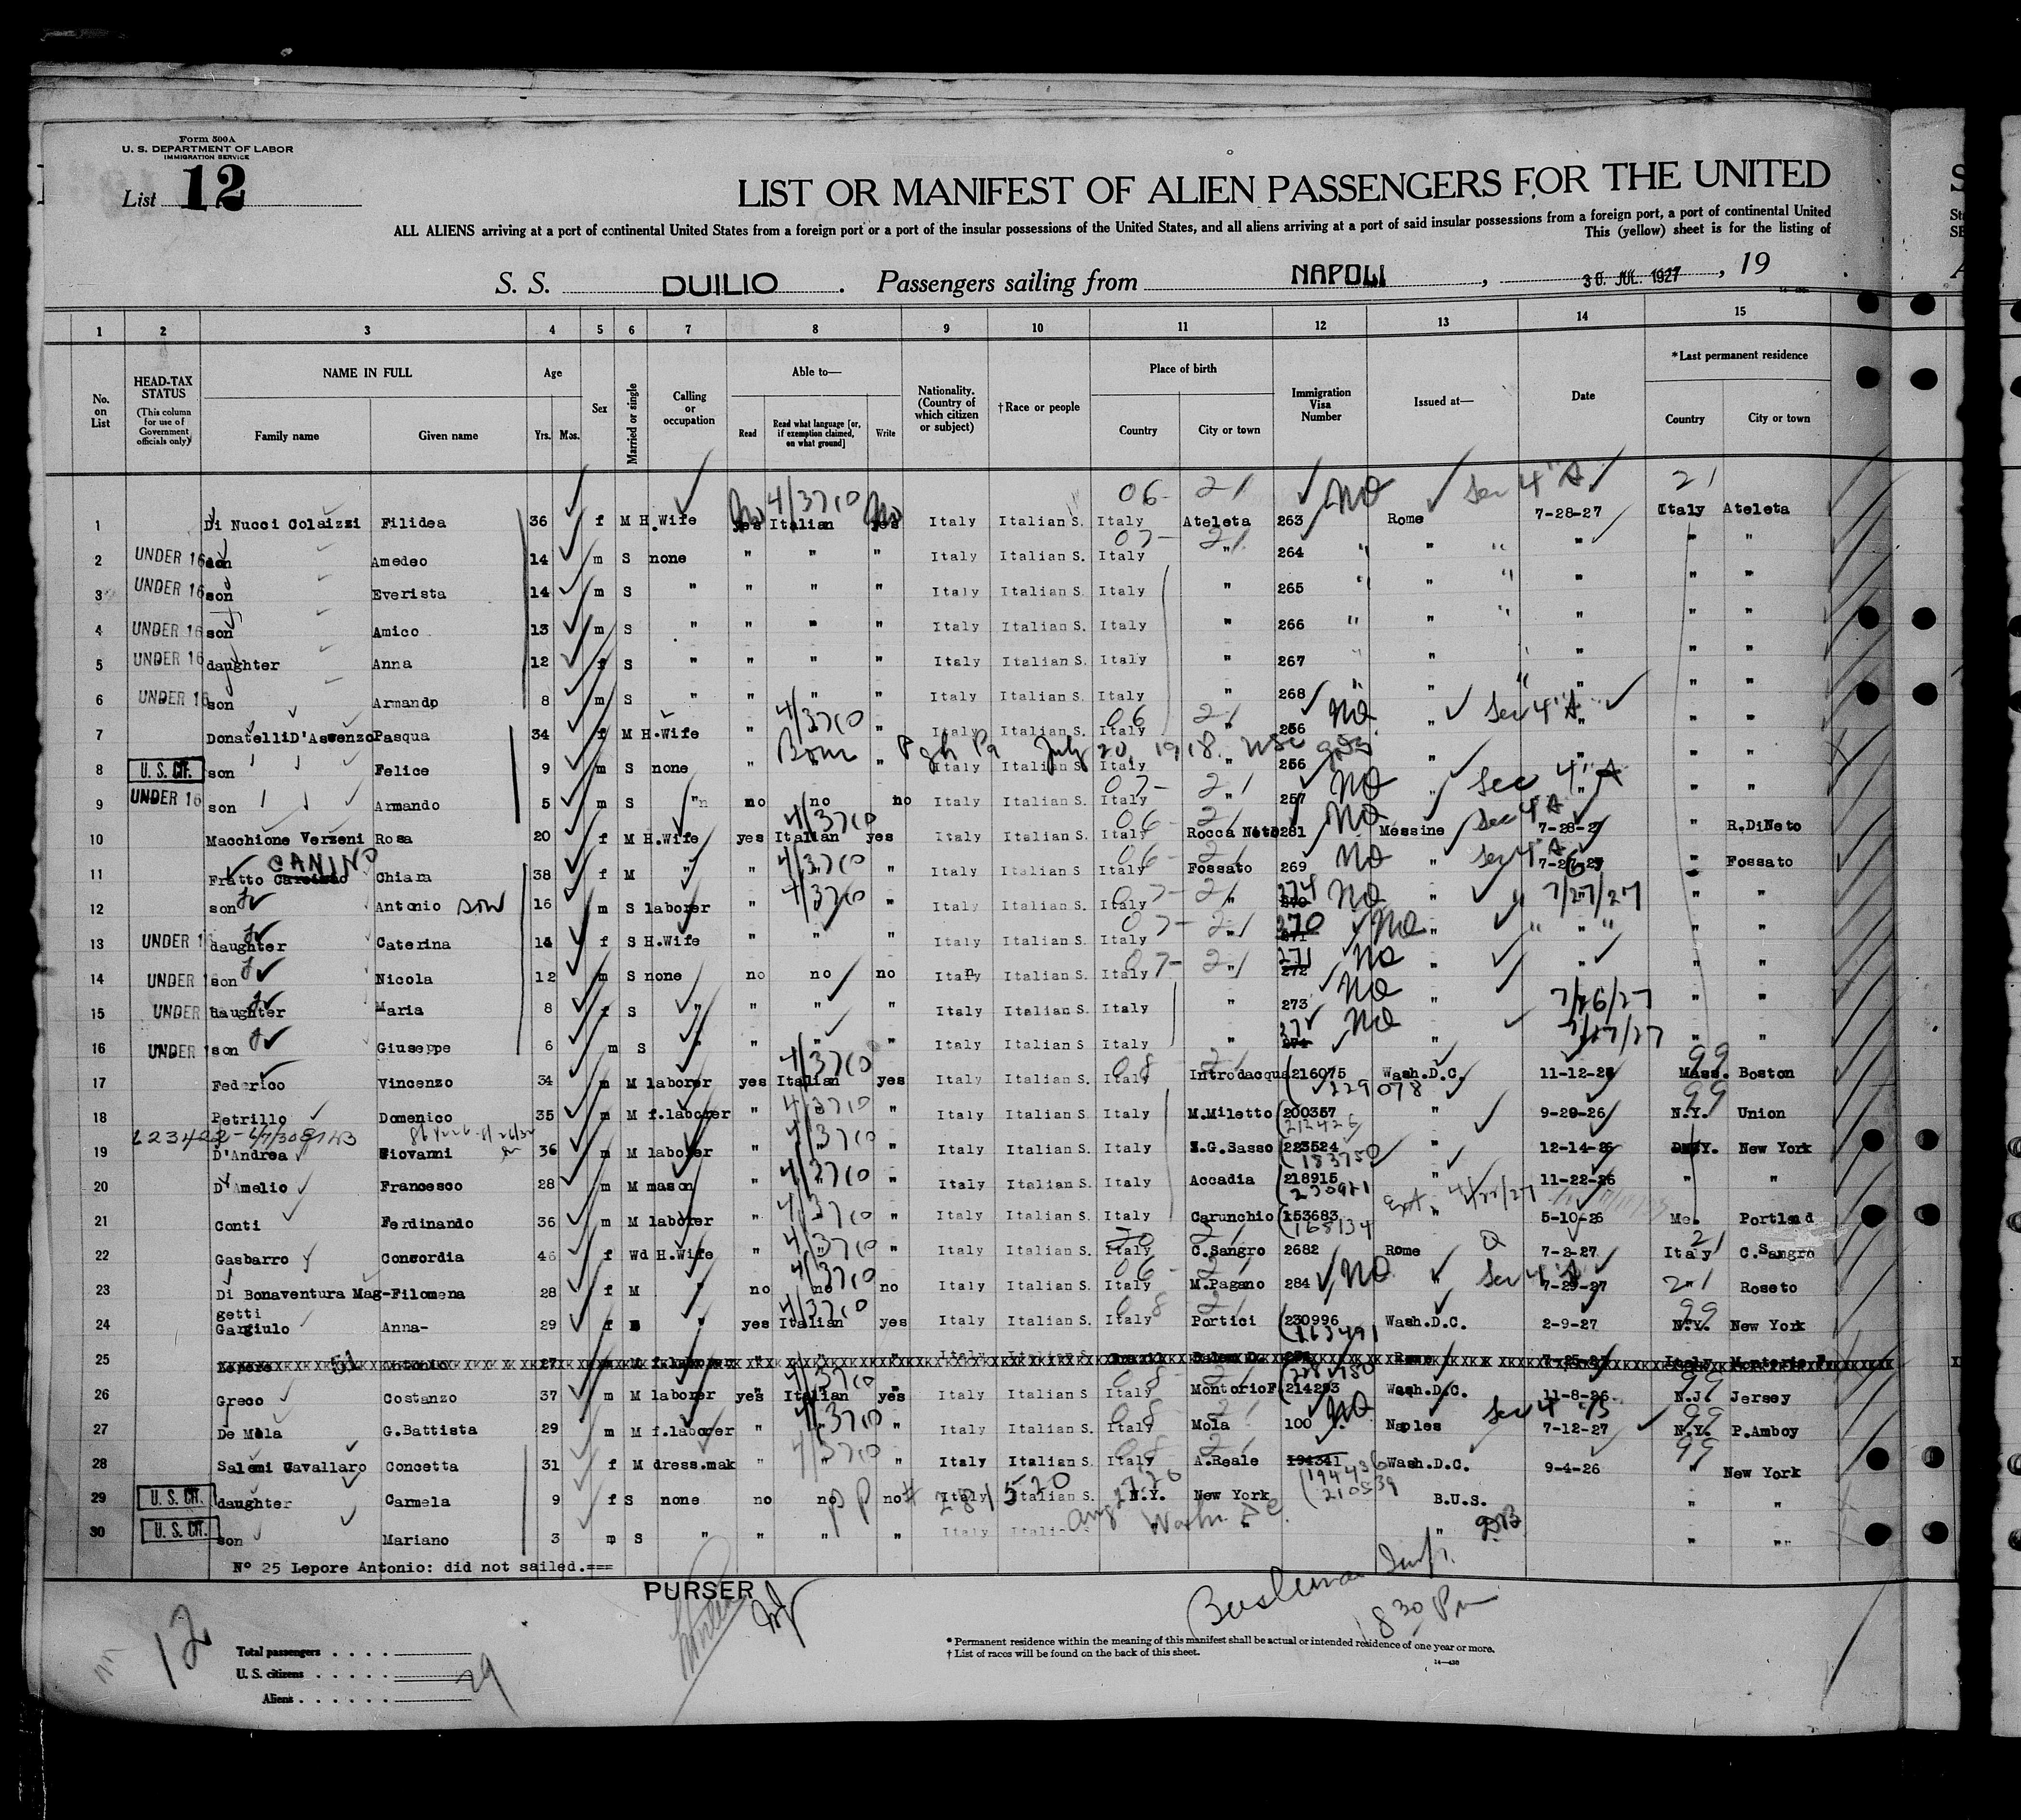 Form 500A
U. S. DEPARTMENT OF LABOR
IMMIGRATION SERVICE
List 12
LIST OR MANIFEST OF ALIEN PASSENGERS FOR THE UNITED
ALL ALIENS arriving at a port of continental United States from a foreign port or a port of the insular possessions of the United States, and all aliens arriving at a port of said insular possessions from a foreign port, a port of continental United
This (yellow) sheet is for the listing of
S. S. DUILIO. Passengers sailing from NAPOLI, 30. JUL. 1927, 19
1 2 3 4 5 6 7 8 9 10 11 12 13 14 15
No. on List
HEAD-TAX STATUS (This column for use of Government officials only)
NAME IN FULL
Family name Given name
Age
Yrs. Mos.
Sex
Married or single
Calling or occupation
Able to—
Read Read what language [or, if exemption claimed, on what ground] Write
Nationality. (Country of which citizen or subject)
†Race or people
Place of birth
Country City or town
Immigration Visa Number
Issued at—
Date
*Last permanent residence
Country City or town
4/3710 06- 21 NO Sec 4"A 21
1 Di Nucci Colaizzi Filidea 36 f M H.Wife yes No Italian yes No Italy Italian S. Italy Ateleta 263 Rome 7-28-27 Italy Ateleta
07- 21
2 UNDER 16 son Amedeo 14 m S none " " " Italy Italian S. Italy " 264 " " " "
3 UNDER 16 son Everista 14 m S " " " " Italy Italian S. Italy " 265 " " " "
4 UNDER 16 son Amico 13 m S " " " " Italy Italian S. Italy " 266 " " " "
5 UNDER 16 daughter Anna 12 f S " " " " Italy Italian S. Italy " 267 " " " "
6 UNDER 16 son Armando 8 m S " " " " Italy Italian S. Italy " 268 " " " "
4/3710 06 21 NO Sec 4"A
7 Donatelli D'Ascenzo Pasqua 34 f M H.Wife " " Italy Italian S. Italy " 256 " " " "
Born Pgh Pa July 20, 1918.
8 U. S. CIT. son Felice 9 m S none " " " Italy Italian S. Italy 256 " " "
07- 21 NO Sec 4"A
9 UNDER 16 son Armando 5 m S " no no no Italy Italian S. Italy " 257 " " " "
4/3710 06- 21 NO Sec 4"A
10 Macchione Verzeni Rosa 20 f M H.Wife yes Italian yes Italy Italian S. Italy Rocca Neto 281 Messine 7-28-27 " R.DiNeto
CANINO 4/3710 06- 21 NO Sec 4"A
11 Fratto Chiara 38 f M " " " " Italy Italian S. Italy Fossato 269 " " Fossato
4/3710 07- 21 274 NO 7/27/27
12 son Antonio son 16 m S laborer " " " Italy Italian S. Italy " 270 " " "
07- 21 270 NO
13 UNDER 1 daughter Caterina 14 f S H.Wife " " " Italy Italian S. Italy " 271 " " " "
07- 21 271 NO
14 UNDER son Nicola 12 m S none no no no Italy Italian S. Italy " 272 " " " "
NO 7/26/27
15 UNDER daughter Maria 8 f S " " " " Italy Italian S. Italy " 273 " " "
NO 7/27/27
16 UNDER 1 son Giuseppe 6 m S " " " " Italy Italian S. Italy " 274 " " "
4/3710 08- 21 99
17 Federico Vincenzo 34 m M laborer yes Italian yes Italy Italian S. Italy Introdacqua 216075 Wash.D.C. 11-12-26 Mass. Boston
4/3710 229078 99
18 Petrillo Domenico 35 m M f.laborer " " Italy Italian S. Italy M.Miletto 200357 " 9-20-26 N.Y. Union
4/3710 212426
19 D'Andrea Giovanni 36 m M laborer " " Italy Italian S. Italy G.Sasso 223524 " 12-14-26 N.Y. New York
4/3710 183750
20 D'Amelio Francesco 28 m M mason " " Italy Italian S. Italy Accadia 218915 " 11-22-26 " "
4/3710 230921 Ext. 4/22/27
21 Conti Ferdinando 36 m M laborer " " Italy Italian S. Italy Carunchio 153683 " 5-10-26 Me. Portland
4/3710 20 21 168134 Q 21
22 Gasbarro Concordia 46 f Wd H.Wife " " Italy Italian S. Italy C.Sangro 2682 Rome 7-2-27 Italy C.Sangro
4/3710 06- 21 NO Sec 4"A
23 Di Bonaventura Mag- Filomena 28 f M " no no no Italy Italian S. Italy M.Pagano 284 " 7-29-27 " Roseto
getti 4/3710 08 21 99
24 Gargiulo Anna- 29 f " yes Italian yes Italy Italian S. Italy Portici 230996 Wash.D.C. 2-9-27 N.Y. New York
163491
25 Lepore Antonio 27 m M f.laborer " " " Italy Italian S. Rome 7-25-27 Italy Montorio F.
4/3710 08- 21 99
26 Greco Costanzo 37 m M laborer yes Italian yes Italy Italian S Italy MontorioF. 214293 Wash.D.C. 11-8-26 N.J. Jersey
4/3710 08 21 NO Sec 4 99
27 De Mola G.Battista 29 m M f.laborer " " " Italy Italian S. Italy Mola 100 Naples 7-12-27 N.Y. P.Amboy
4/3710 08 21 99
28 Salemi Cavallaro Concetta 31 f M dress.mak " " " Italy Italian S. Italy A.Reale 194341 Wash.D.C. 9-4-26 " New York
194436
210539
29 U. S. CIT. daughter Carmela 9 f S none no no no Italy Italian S. N.Y. New York B.U.S. " "
PP # 281520 Aug Wash. D C.
30 U. S. CIT. son Mariano 3 m S " " " " Italy " " " " "
N° 25 Lepore Antonio: did not sailed.===
PURSER
8 30 Pm
12
Total passengers
U. S. citizens
Aliens
29
* Permanent residence within the meaning of this manifest shall be actual or intended residence of one year or more.
† List of races will be found on the back of this sheet.
14—430